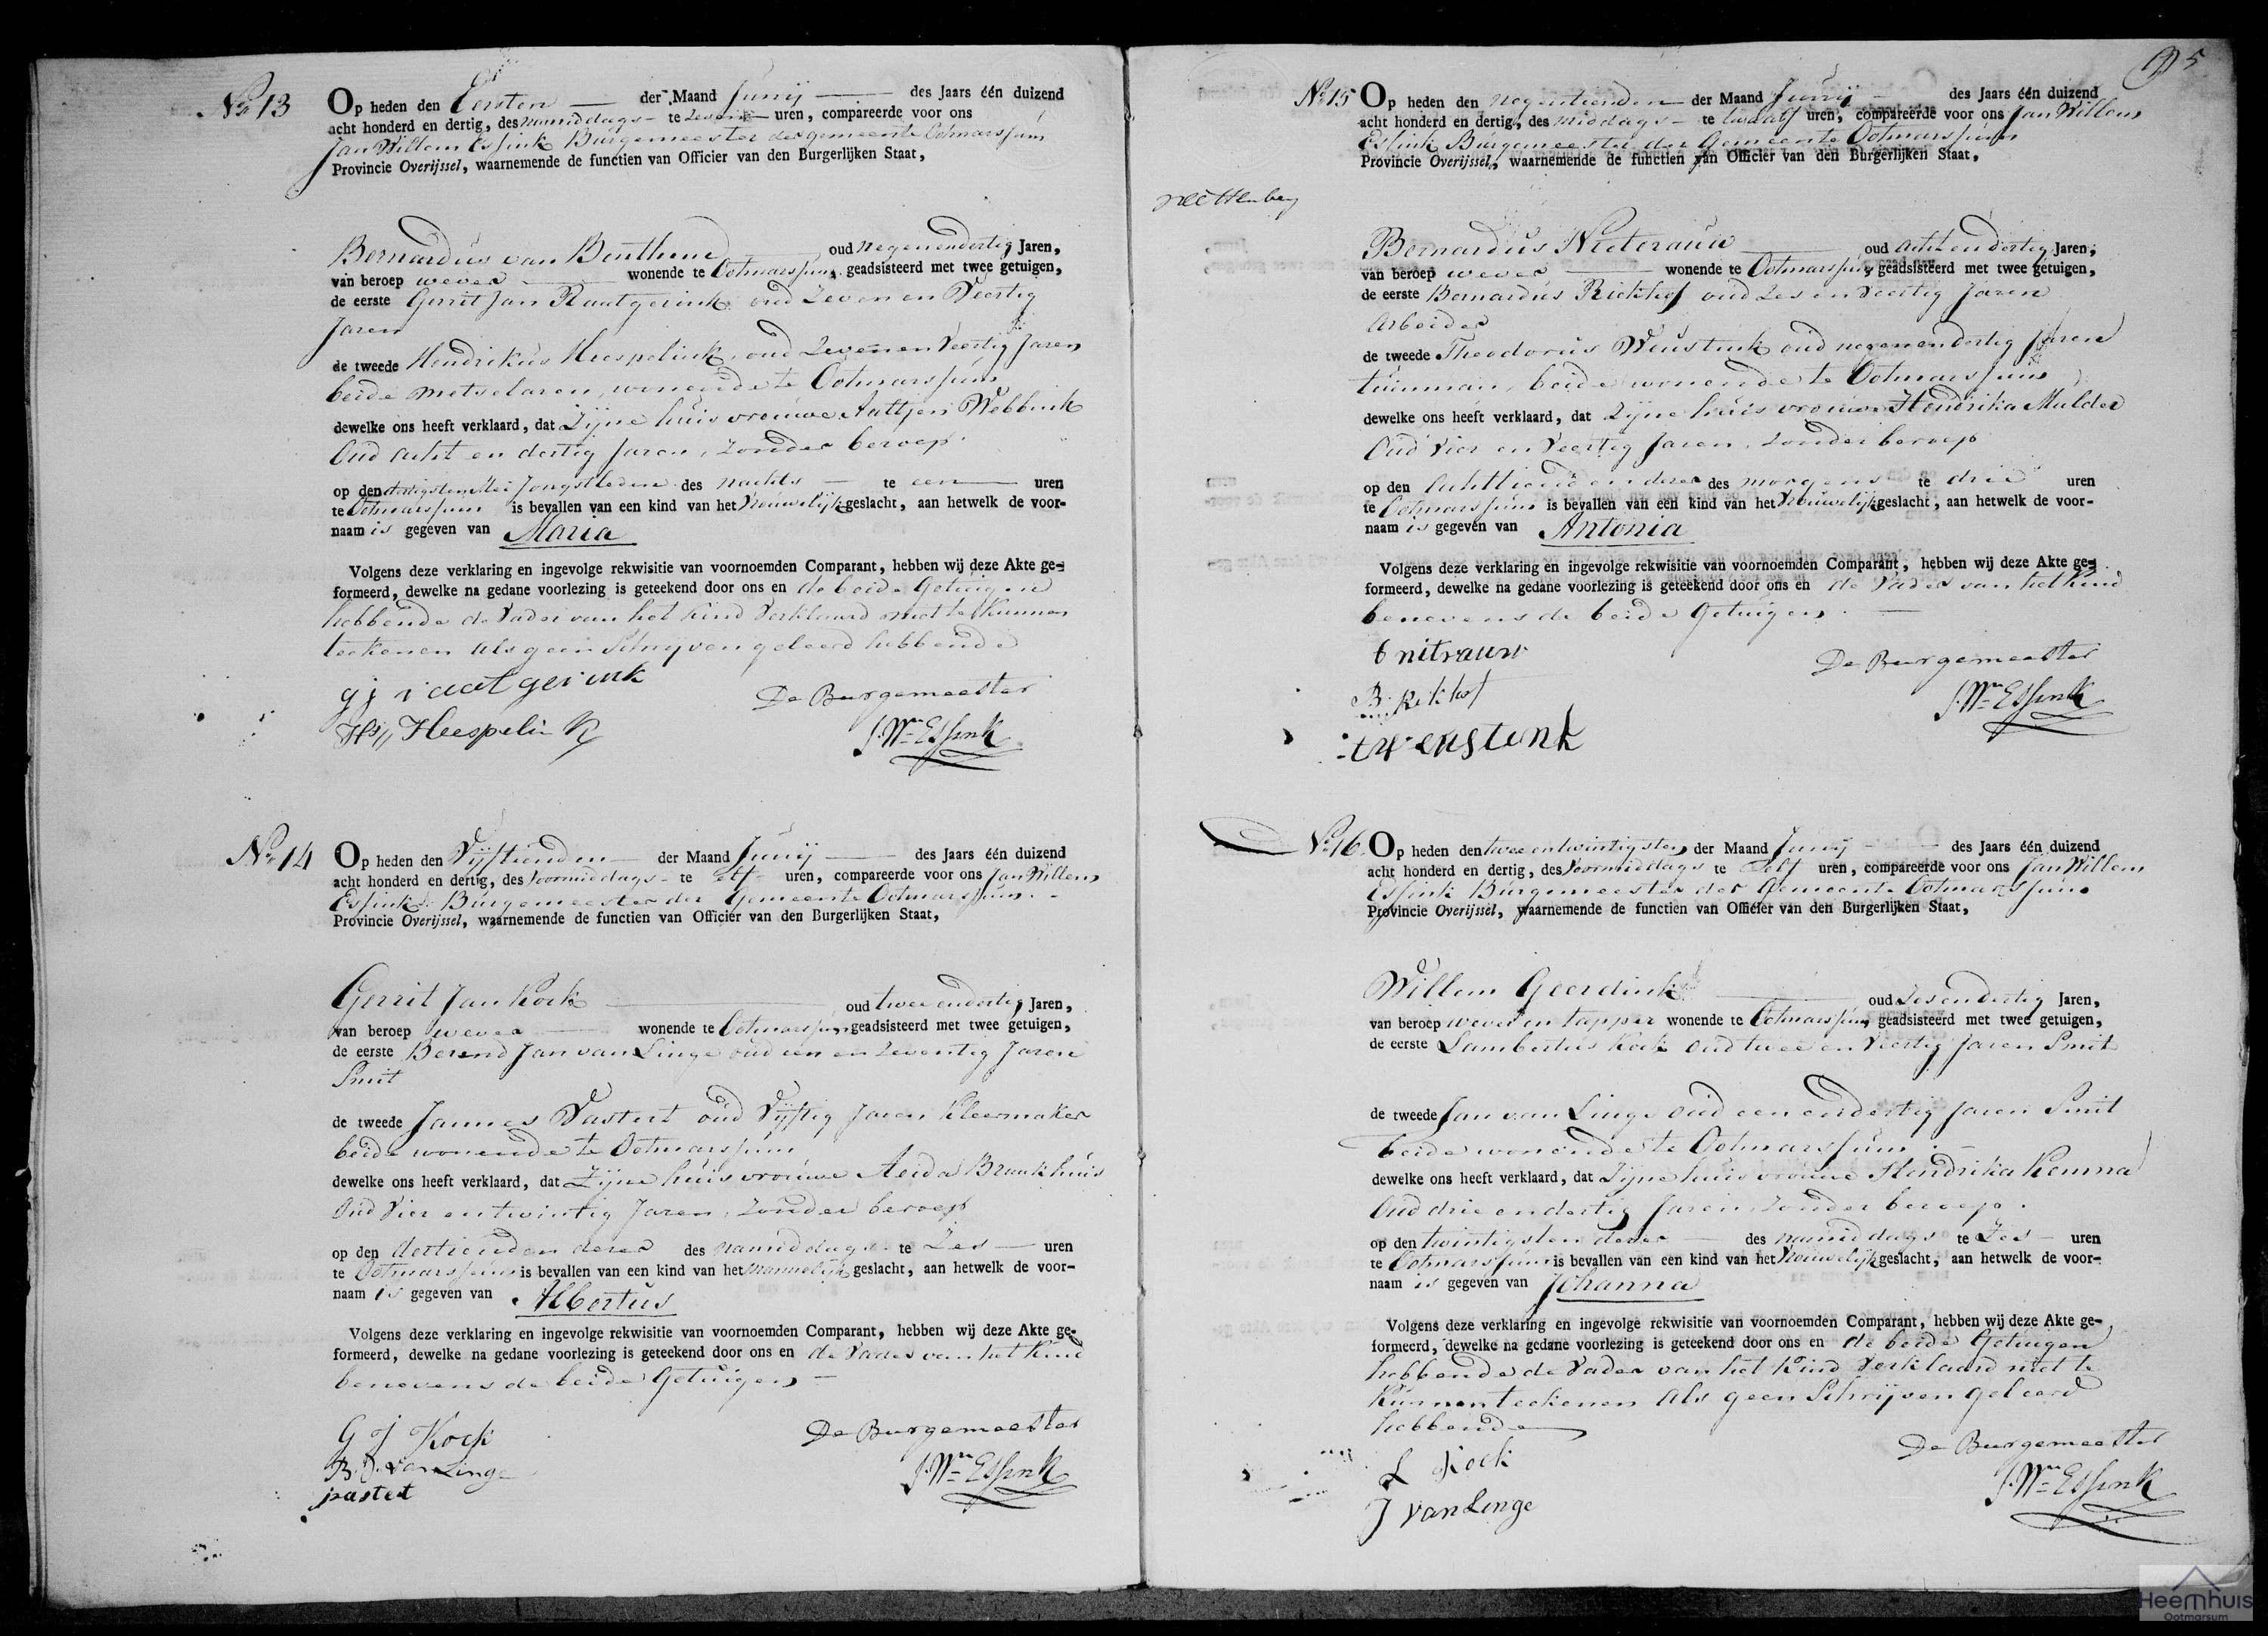 No 13 Op heden den Eersten der Maand Junij des Jaars één duizend
acht honderd en dertig, des namiddags te zeven uren, compareerde voor ons
Jan Willem Essink Burgemeester der gemeente Ootmarssum
Provincie Overijssel, waarnemende de functien van Officier van den Burgerlijken Staat,
Bernardus van Benthem oud negenendertig Jaren,
van beroep wever wonende te Ootmarssum, geadsisteerd met twee getuigen,
de eerste Gerrit Jan Raatgerink oud Zeven en Veertig
Jaren
de tweede Hendrikus Heespelink, oud Zevenen Veertig Jaren
beide metselaren, wonende te Ootmarssum
dewelke ons heeft verklaard, dat Zijne huisvrouwe Aaltjen Webbink
Oud acht en dertig Jaren, zonder beroep
op den dertigsten Mei Jongstleden des nachts te een uren
te Ootmarssum is bevallen van een kind van het Vrouwelijk geslacht, aan hetwelk de voor-
naam is gegeven van Maria
Volgens deze verklaring en ingevolge rekwisitie van voornoemden Comparant, hebben wij deze Akte ge-
formeerd, dewelke na gedane voorlezing is geteekend door ons en de beide Getuigen
hebbende de Vader van het Kind Verklaard niet te Kunnen
teekenen als geen Schrijven geleerd hebbende
gj raatgerink
De Burgemeester
Hs Heespelink
J. Wm Essink
No 14 Op heden den Vijftienden der Maand Junij des Jaars één duizend
acht honderd en dertig, des Voormiddags te elf uren, compareerde voor ons Jan Willem
Essink Burgemeester der Gemeente Ootmarssum
Provincie Overijssel, waarnemende de functien van Officier van den Burgerlijken Staat,
Gerrit Jan Kock oud twee endertig Jaren,
van beroep wever wonende te Ootmarssum geadsisteerd met twee getuigen,
de eerste Berend Jan van Linge oud een en Zeventig Jaren
Smit
de tweede Jannes Vastert oud Vijftig Jaren Kleermaker
beide wonende te Ootmarssum
dewelke ons heeft verklaard, dat Zijne huisvrouwe Aeida Braakhuis
Oud Vier en twintig Jaren, Zonder beroep
op den dertienden dezer des namiddags te Zes uren
te Ootmarssum is bevallen van een kind van het Mannelijk geslacht, aan hetwelk de voor-
naam is gegeven van Albertus
Volgens deze verklaring en ingevolge rekwisitie van voornoemden Comparant, hebben wij deze Akte ge-
formeerd, dewelke na gedane voorlezing is geteekend door ons en de Vader van het Kind
benevens de beide Getuigen
G J Kock
De Burgemeester
B. J. van Linge
J. Wm Essink
95
No 15 Op heden den negentienden der Maand Junij des Jaars één duizend
acht honderd en dertig, des middags te twaalf uren, compareerde voor ons Jan Willem
Essink Burgemeester der Gemeente Ootmarssum
Provincie Overijssel, waarnemende de functien van Officier van den Burgerlijken Staat,
Bernardus Nieterauw oud acht en dertig Jaren,
van beroep wever wonende te Ootmarssum geadsisteerd met twee getuigen,
de eerste Bernardus Riekhof oud Zes en Veertig Jaren
Arbeider
de tweede Theodorus Weustink oud negenendertig Jaren
tuinman, beide wonende te Ootmarssum
dewelke ons heeft verklaard, dat Zijne huisvrouwe Hendrika Mulder
Oud Vier en Veertig Jaren, Zonder beroep
op den Achttienden dezer des morgens te drie uren
te Ootmarssum is bevallen van een kind van het Vrouwelijk geslacht, aan hetwelk de voor-
naam is gegeven van Antonia
Volgens deze verklaring en ingevolge rekwisitie van voornoemden Comparant, hebben wij deze Akte ge-
formeerd, dewelke na gedane voorlezing is geteekend door ons en de Vader van het Kind
benevens de beide Getuigen
b nitrauw
De Burgemeester
B. rikhof
J. Wm Essink
No 16 Op heden den twee entwintigsten der Maand Junij des Jaars één duizend
acht honderd en dertig, des Voormiddags te elf uren, compareerde voor ons Jan Willem
Essink Burgemeester der Gemeente Ootmarssum
Provincie Overijssel, waarnemende de functien van Officier van den Burgerlijken Staat,
Willem Geerdink oud Zesendertig Jaren,
van beroep wever en tapper wonende te Ootmarssum geadsisteerd met twee getuigen,
de eerste Lambertus Kock Oud twee en Veertig Jaren Smit
de tweede Jan van Linge oud een endertig Jaren Smit
beide wonende te Ootmarssum
dewelke ons heeft verklaard, dat Zijne huisvrouwe Hendrika Kemna
Oud drie endertig Jaren, Zonder beroep.
op den twintigsten dezer des namiddags te Zes uren
te Ootmarssum is bevallen van een kind van het Vrouwelijk geslacht, aan hetwelk de voor-
naam is gegeven van Johanna
Volgens deze verklaring en ingevolge rekwisitie van voornoemden Comparant, hebben wij deze Akte ge-
formeerd, dewelke na gedane voorlezing is geteekend door ons en de beide Getuigen
hebbende de Vader van het Kind Verklaard niet te
Kunnen teekenen als geen Schrijven geleerd
hebbende
De Burgemeester
L Kock
J. Wm Essink
J van Linge
Heemhuis
Ootmarsum